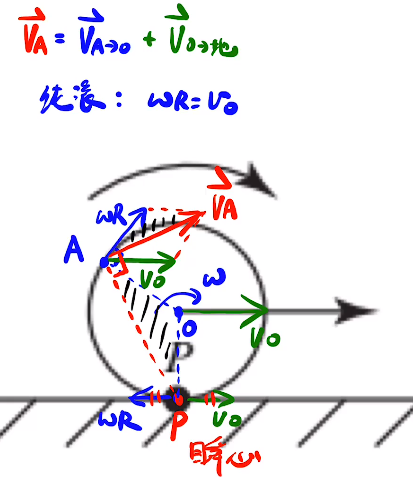 V⃗A = V⃗A→O + V⃗O→地
纯滚: ωR=v0
ωR
V⃗A
A
v0
ω
O
v0
P
ωR
P
v0
瞬心